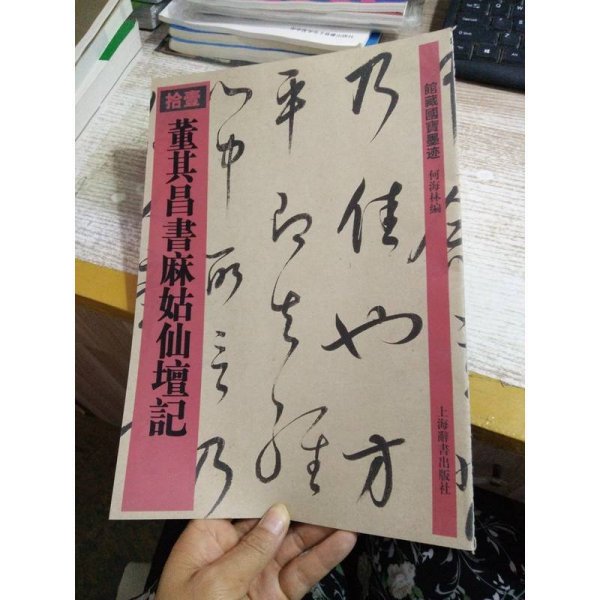 館藏國寶墨迹
何海林編
上海辭書出版社
拾壹
董其昌書麻姑仙壇記
乃佳也方
平即去經
心中所言乃